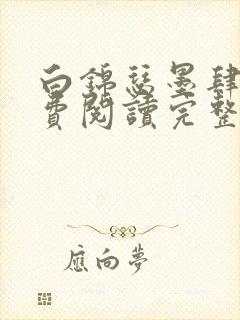 白錦瑟墨肆
費閱讀完整
應向夢